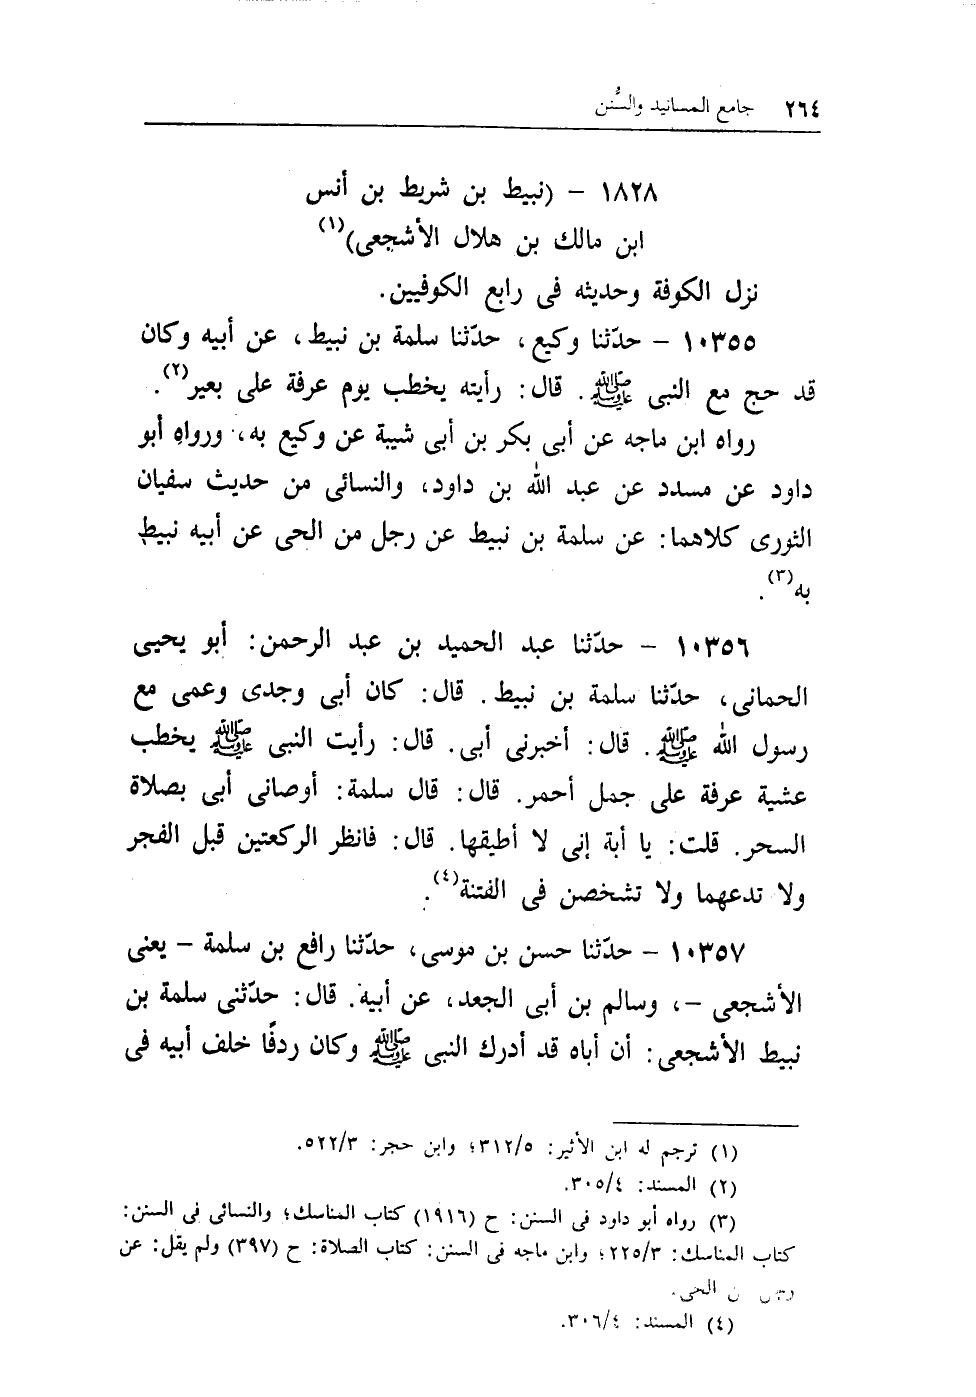 ٢٦٤ جامع المسانيد والسُّنن
١٨٢٨ – (نبيط بن شريط بن أنس
ابن مالك بن هلال الأشجعى)(١)
نزل الكوفة وحديثه فى رابع الكوفيين.
١٠٣٥٥ – حدّثنا وكيع، حدّثنا سلمة بن نبيط، عن أبيه وكان
قد حج مع النبى ﷺ. قال: رأيته يخطب يوم عرفة على بعير(٢).
رواه ابن ماجه عن أبى بكر بن أبى شيبة عن وكيع به، ورواه أبو
داود عن مسدد عن عبد الله بن داود، والنسائى من حديث سفيان
الثورى كلاهما: عن سلمة بن نبيط عن رجل من الحى عن أبيه نبيط
به(٣).
١٠٣٥٦ – حدّثنا عبد الحميد بن عبد الرحمن: أبو يحيى
الحمانى، حدّثنا سلمة بن نبيط. قال: كان أبى وجدى وعمى مع
رسول الله ﷺ. قال: أخبرنى أبى. قال: رأيت النبى ﷺ يخطب
عشية عرفة على جمل أحمر. قال: قال سلمة: أوصانى أبى بصلاة
السحر. قلت: يا أبة إنى لا أطيقها. قال: فانظر الركعتين قبل الفجر
ولا تدعهما ولا تشخصن فى الفتنة(٤).
١٠٣٥٧ – حدّثنا حسن بن موسى، حدّثنا رافع بن سلمة – يعنى
الأشجعى –، وسالم بن أبى الجعد، عن أبيه. قال: حدّثنى سلمة بن
نبيط الأشجعى: أن أباه قد أدرك النبى ﷺ وكان ردفًا خلف أبيه فى
(١) ترجم له ابن الأثير: ٣١٢/٥؛ وابن حجر: ٥٢٢/٣.
(٢) المسند: ٣٠٥/٤.
(٣) رواه أبو داود فى السنن: ح (١٩١٦) كتاب المناسك؛ والنسائى فى السنن:
كتاب المناسك: ٢٢٥/٣؛ وابن ماجه فى السنن: كتاب الصلاة: ح (٣٩٧) ولم يقل: عن
الحى.
(٤) المسند: ٣٠٦/٤.